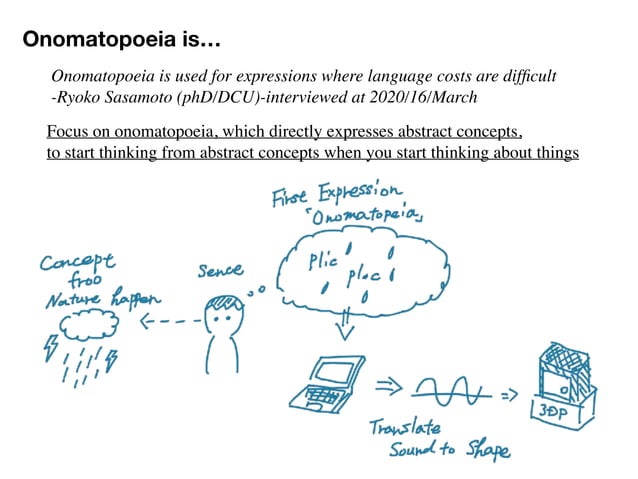 Onomatopoeia is…
Onomatopoeia is used for expressions where language costs are difficult
-Ryoko Sasamoto (phD/DCU)-interviewed at 2020/16/March
Focus on onomatopoeia, which directly expresses abstract concepts,
to start thinking from abstract concepts when you start thinking about things
First Expression
「Onomatopeia」
Concept
froo
Nature happen
Sence
Plic
ploc
3DP
Translate
Sound to Shape